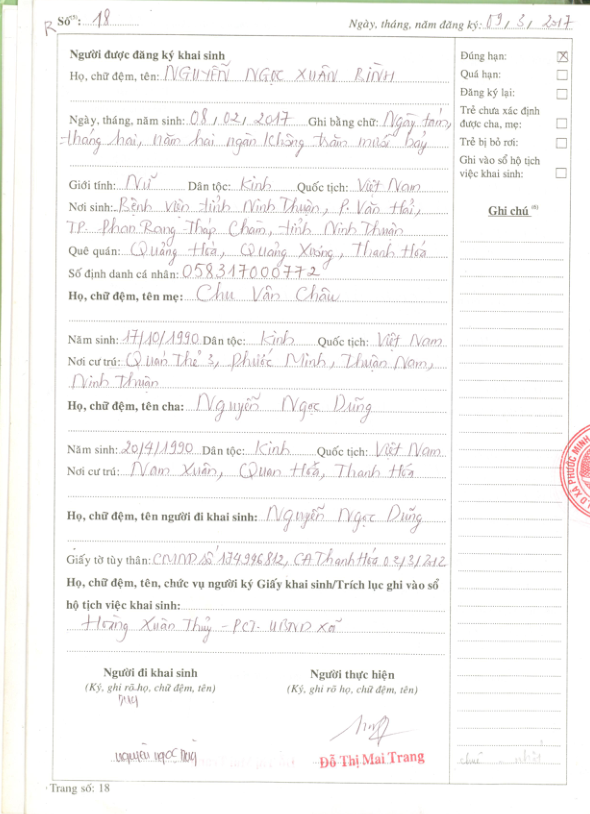 Số⁽¹⁾: 18
Ngày, tháng, năm đăng ký: 09, 3, 2017
Người được đăng ký khai sinh
Họ, chữ đệm, tên: NGUYỄN NGỌC XUÂN BÌNH
Ngày, tháng, năm sinh: 08, 02, 2017 Ghi bằng chữ: Ngày tám,
tháng hai, năm hai ngàn không trăm mười bảy
Giới tính: Nữ Dân tộc: Kinh Quốc tịch: Việt Nam
Nơi sinh: Bệnh viện tỉnh Ninh Thuận, P. Văn Hải,
TP. Phan Rang Tháp Chàm, tỉnh Ninh Thuận
Quê quán: Quảng Hòa, Quảng Xương, Thanh Hóa
Số định danh cá nhân: 058317000772
Họ, chữ đệm, tên mẹ: Chu Vân Châu
Năm sinh: 17/10/1990 Dân tộc: Kinh Quốc tịch: Việt Nam
Nơi cư trú: Quán Thẻ 3, Phước Minh, Thuận Nam,
Ninh Thuận
Họ, chữ đệm, tên cha: Nguyễn Ngọc Dũng
Năm sinh: 20/4/1990 Dân tộc: Kinh Quốc tịch: Việt Nam
Nơi cư trú: Nam Xuân, Quan Hoá, Thanh Hóa
Họ, chữ đệm, tên người đi khai sinh: Nguyễn Ngọc Dũng
Giấy tờ tùy thân: CMND số 174996812, CA Thanh Hóa 02/3/2012
Họ, chữ đệm, tên, chức vụ người ký Giấy khai sinh/Trích lục ghi vào sổ
hộ tịch việc khai sinh:
Hoàng Xuân Thủy - PCT- UBND xã
Người đi khai sinh
(Ký, ghi rõ họ, chữ đệm, tên)
nguyễn ngọc Dũng
Người thực hiện
(Ký, ghi rõ họ, chữ đệm, tên)
Đỗ Thị Mai Trang
Trang số: 18
Đúng hạn: X
Quá hạn:
Đăng ký lại:
Trẻ chưa xác định
được cha, mẹ:
Trẻ bị bỏ rơi:
Ghi vào sổ hộ tịch
việc khai sinh:
Ghi chú
D XÃ PHƯỚC MINH